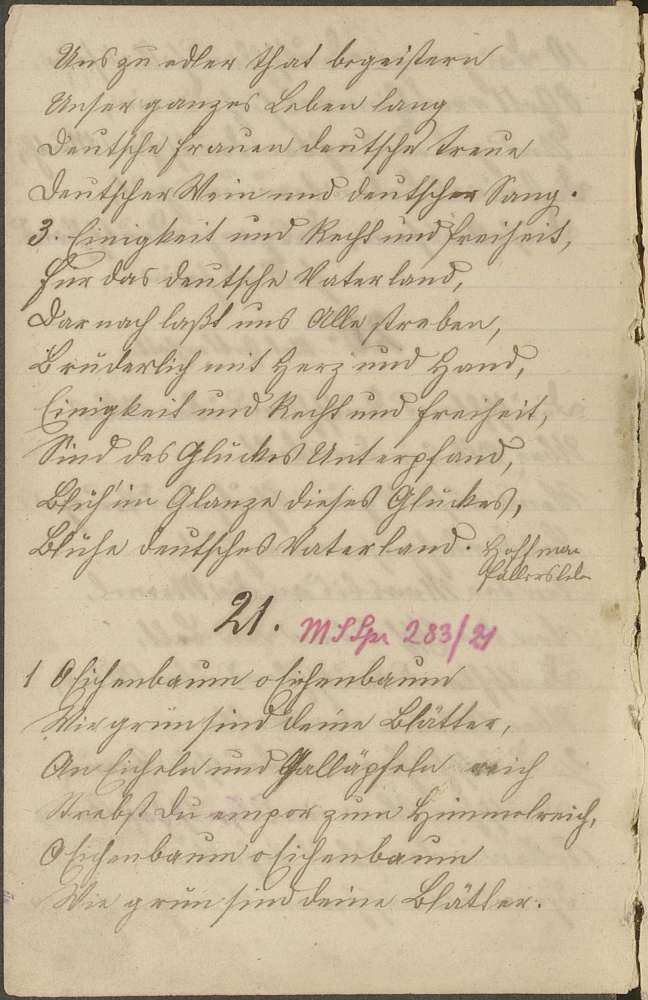 Uns zu edler That begeistern
Unser ganzes Leben lang
Deutsche Frauen deutsche Treue
Deutscher Wein und deutscher Sang.
3. Einigkeit und Recht und Freiheit,
Für das deutsche Vaterland,
Darnach laßt uns Alle streben,
Brüderlich mit Herz und Hand,
Einigkeit und Recht und Freiheit,
Sind des Glückes Unterpfand,
Blüh' im Glanze dieses Glückes,
Blühe deutsches Vaterland. Hoffman
Fallersleben
21. MSSpr 283/21
1 O Eichenbaum o Eichenbaum
Wie grün sind deine Blätter,
An Eicheln und Galläpfeln reich
Strebst Du empor zum Himmelreich,
O Eichenbaum o Eichenbaum
Wie grün sind deine Blätter.